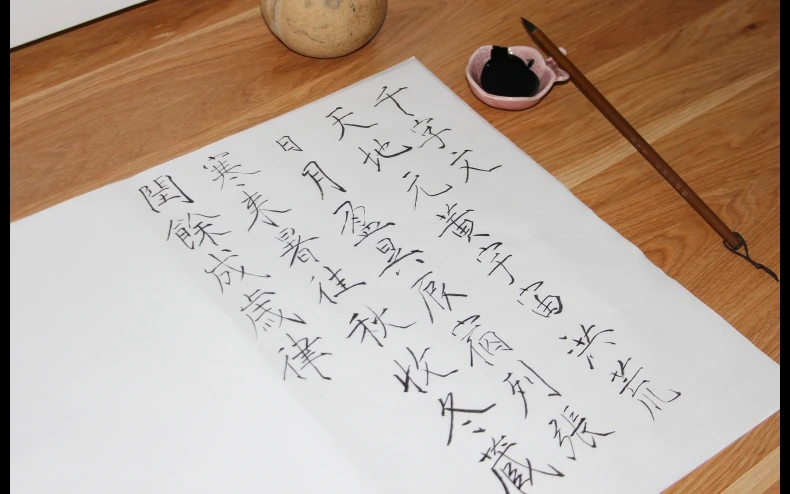 千字文
天地元黄宇宙洪荒
日月盈昃辰宿列張
寒来暑往秋收冬藏
閏餘成歳律